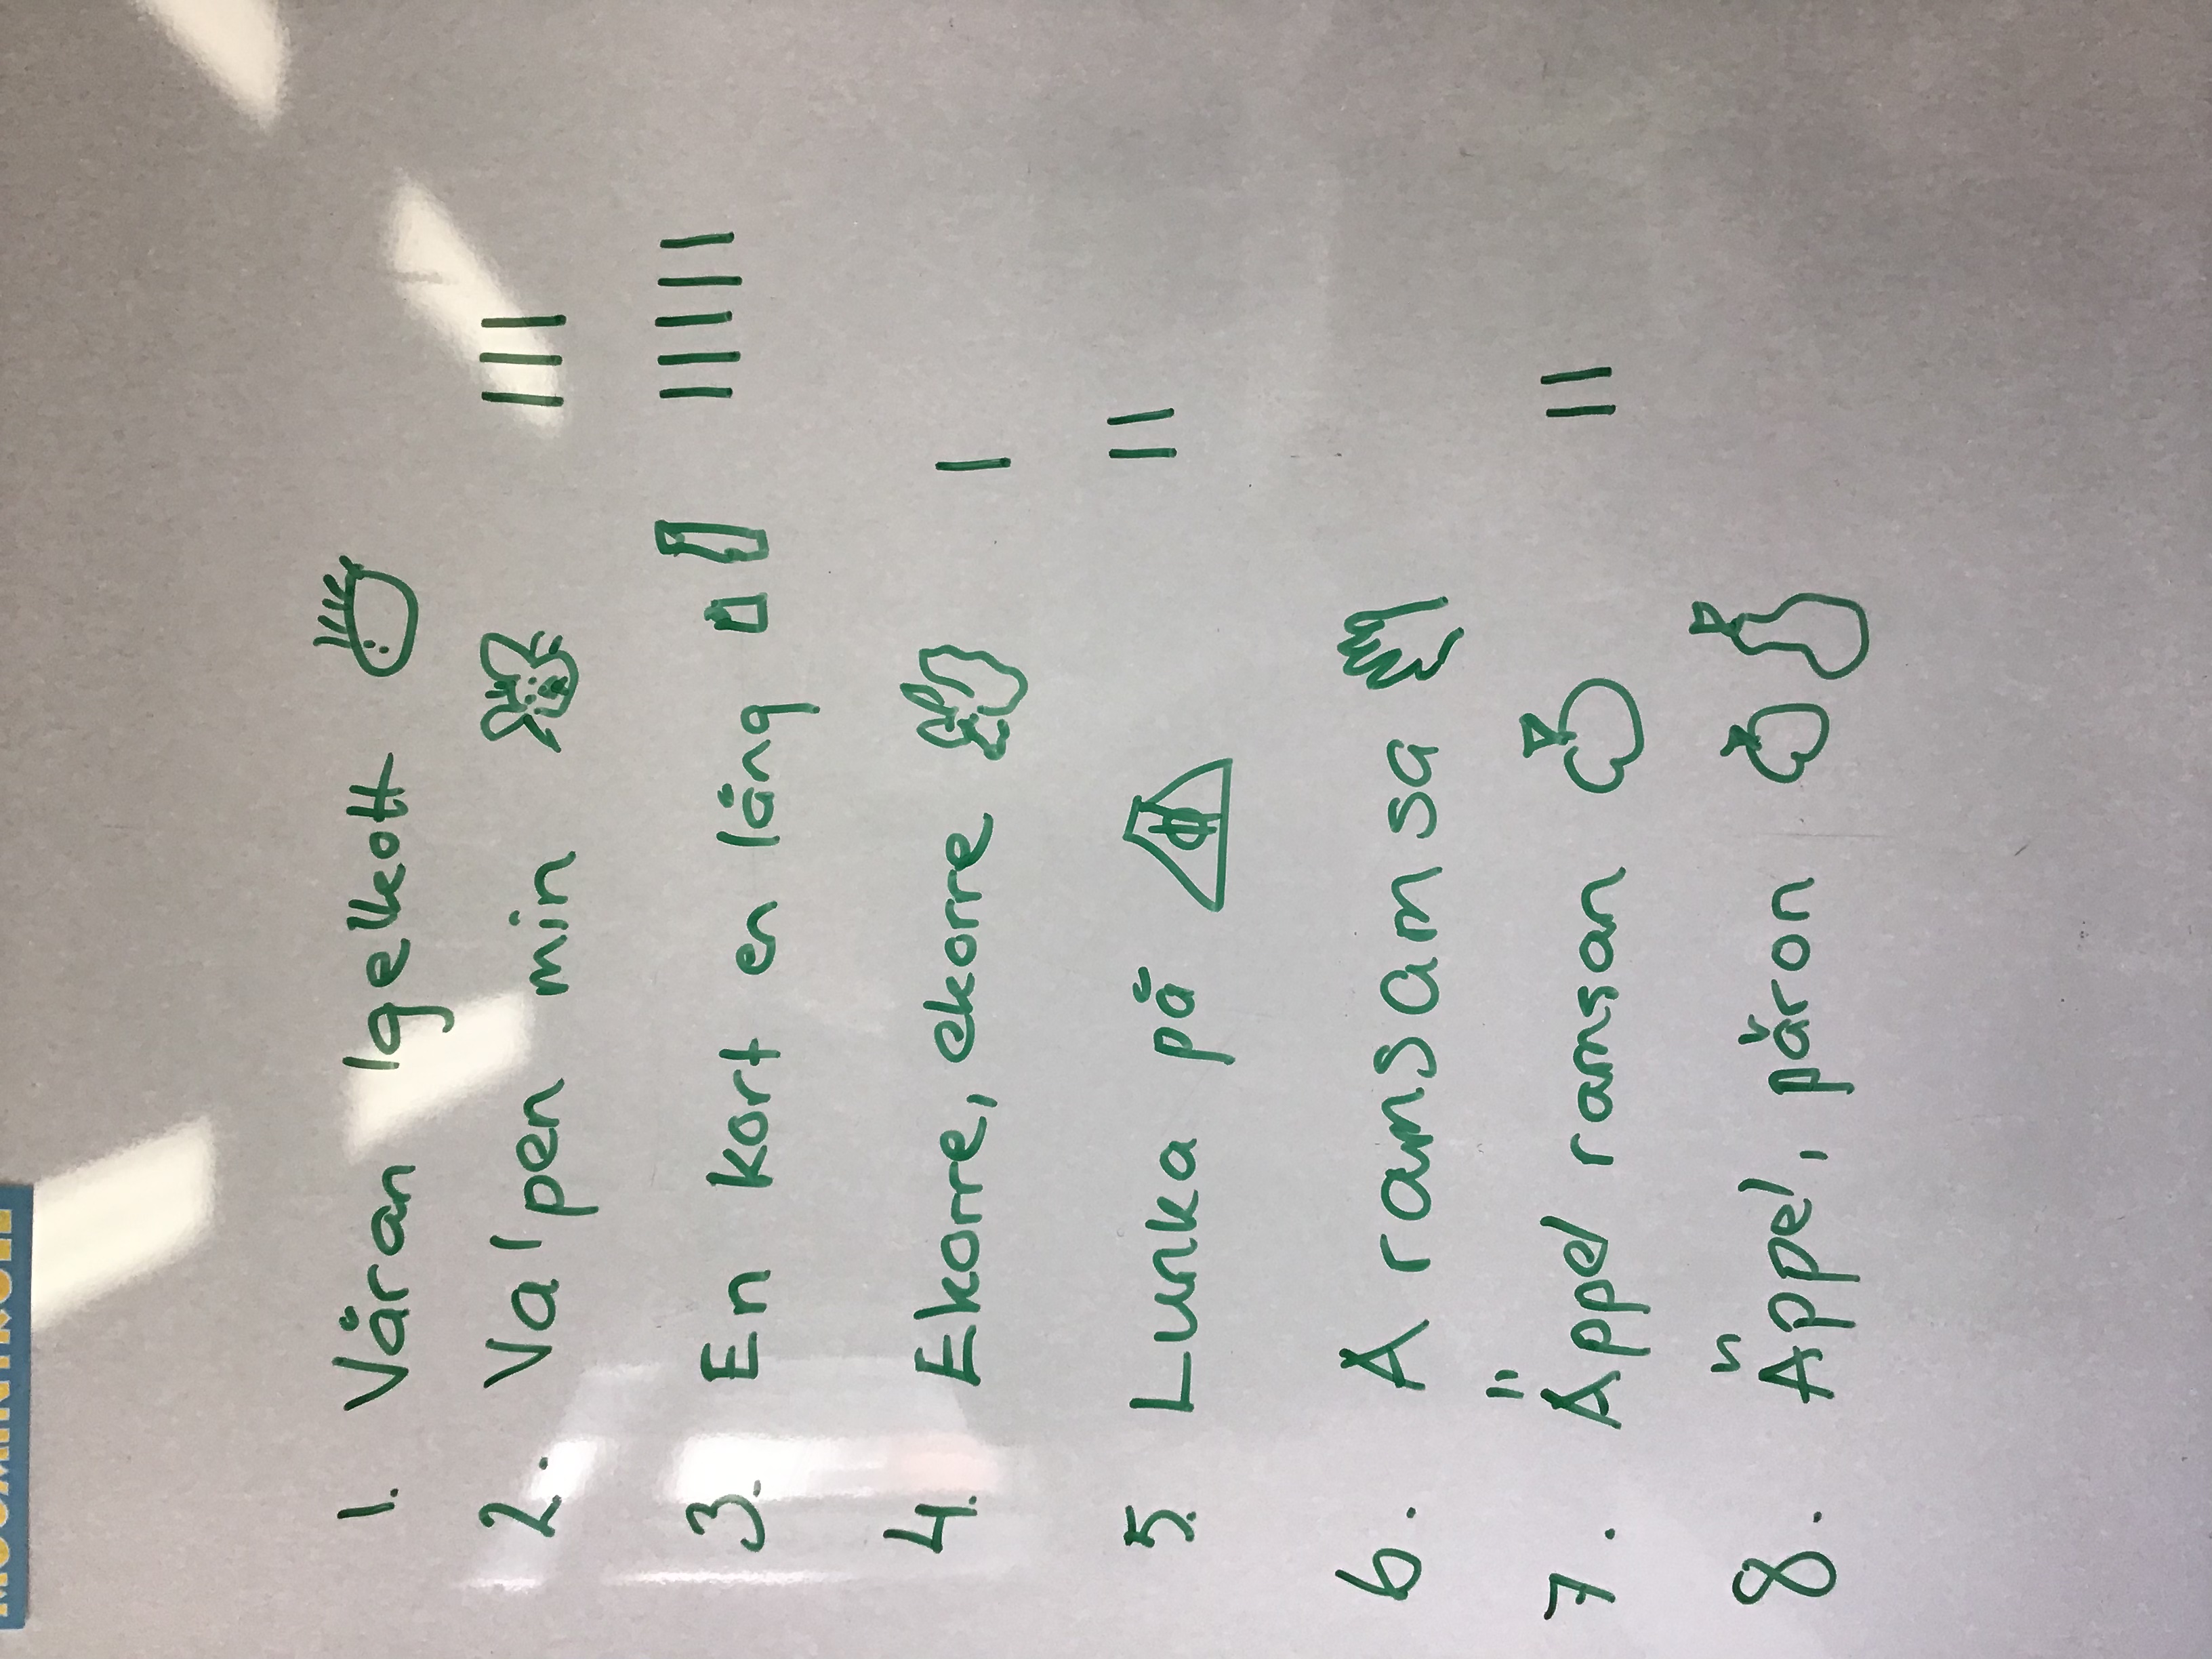 1. Våran Igelkott
2. Valpen min |||
3. En kort en lång |||||
4. Ekorre, ekorre |
5. Lunka på ||
6. A ramsamsa
7. Äppel ramsan ||
8. Äppel, päron